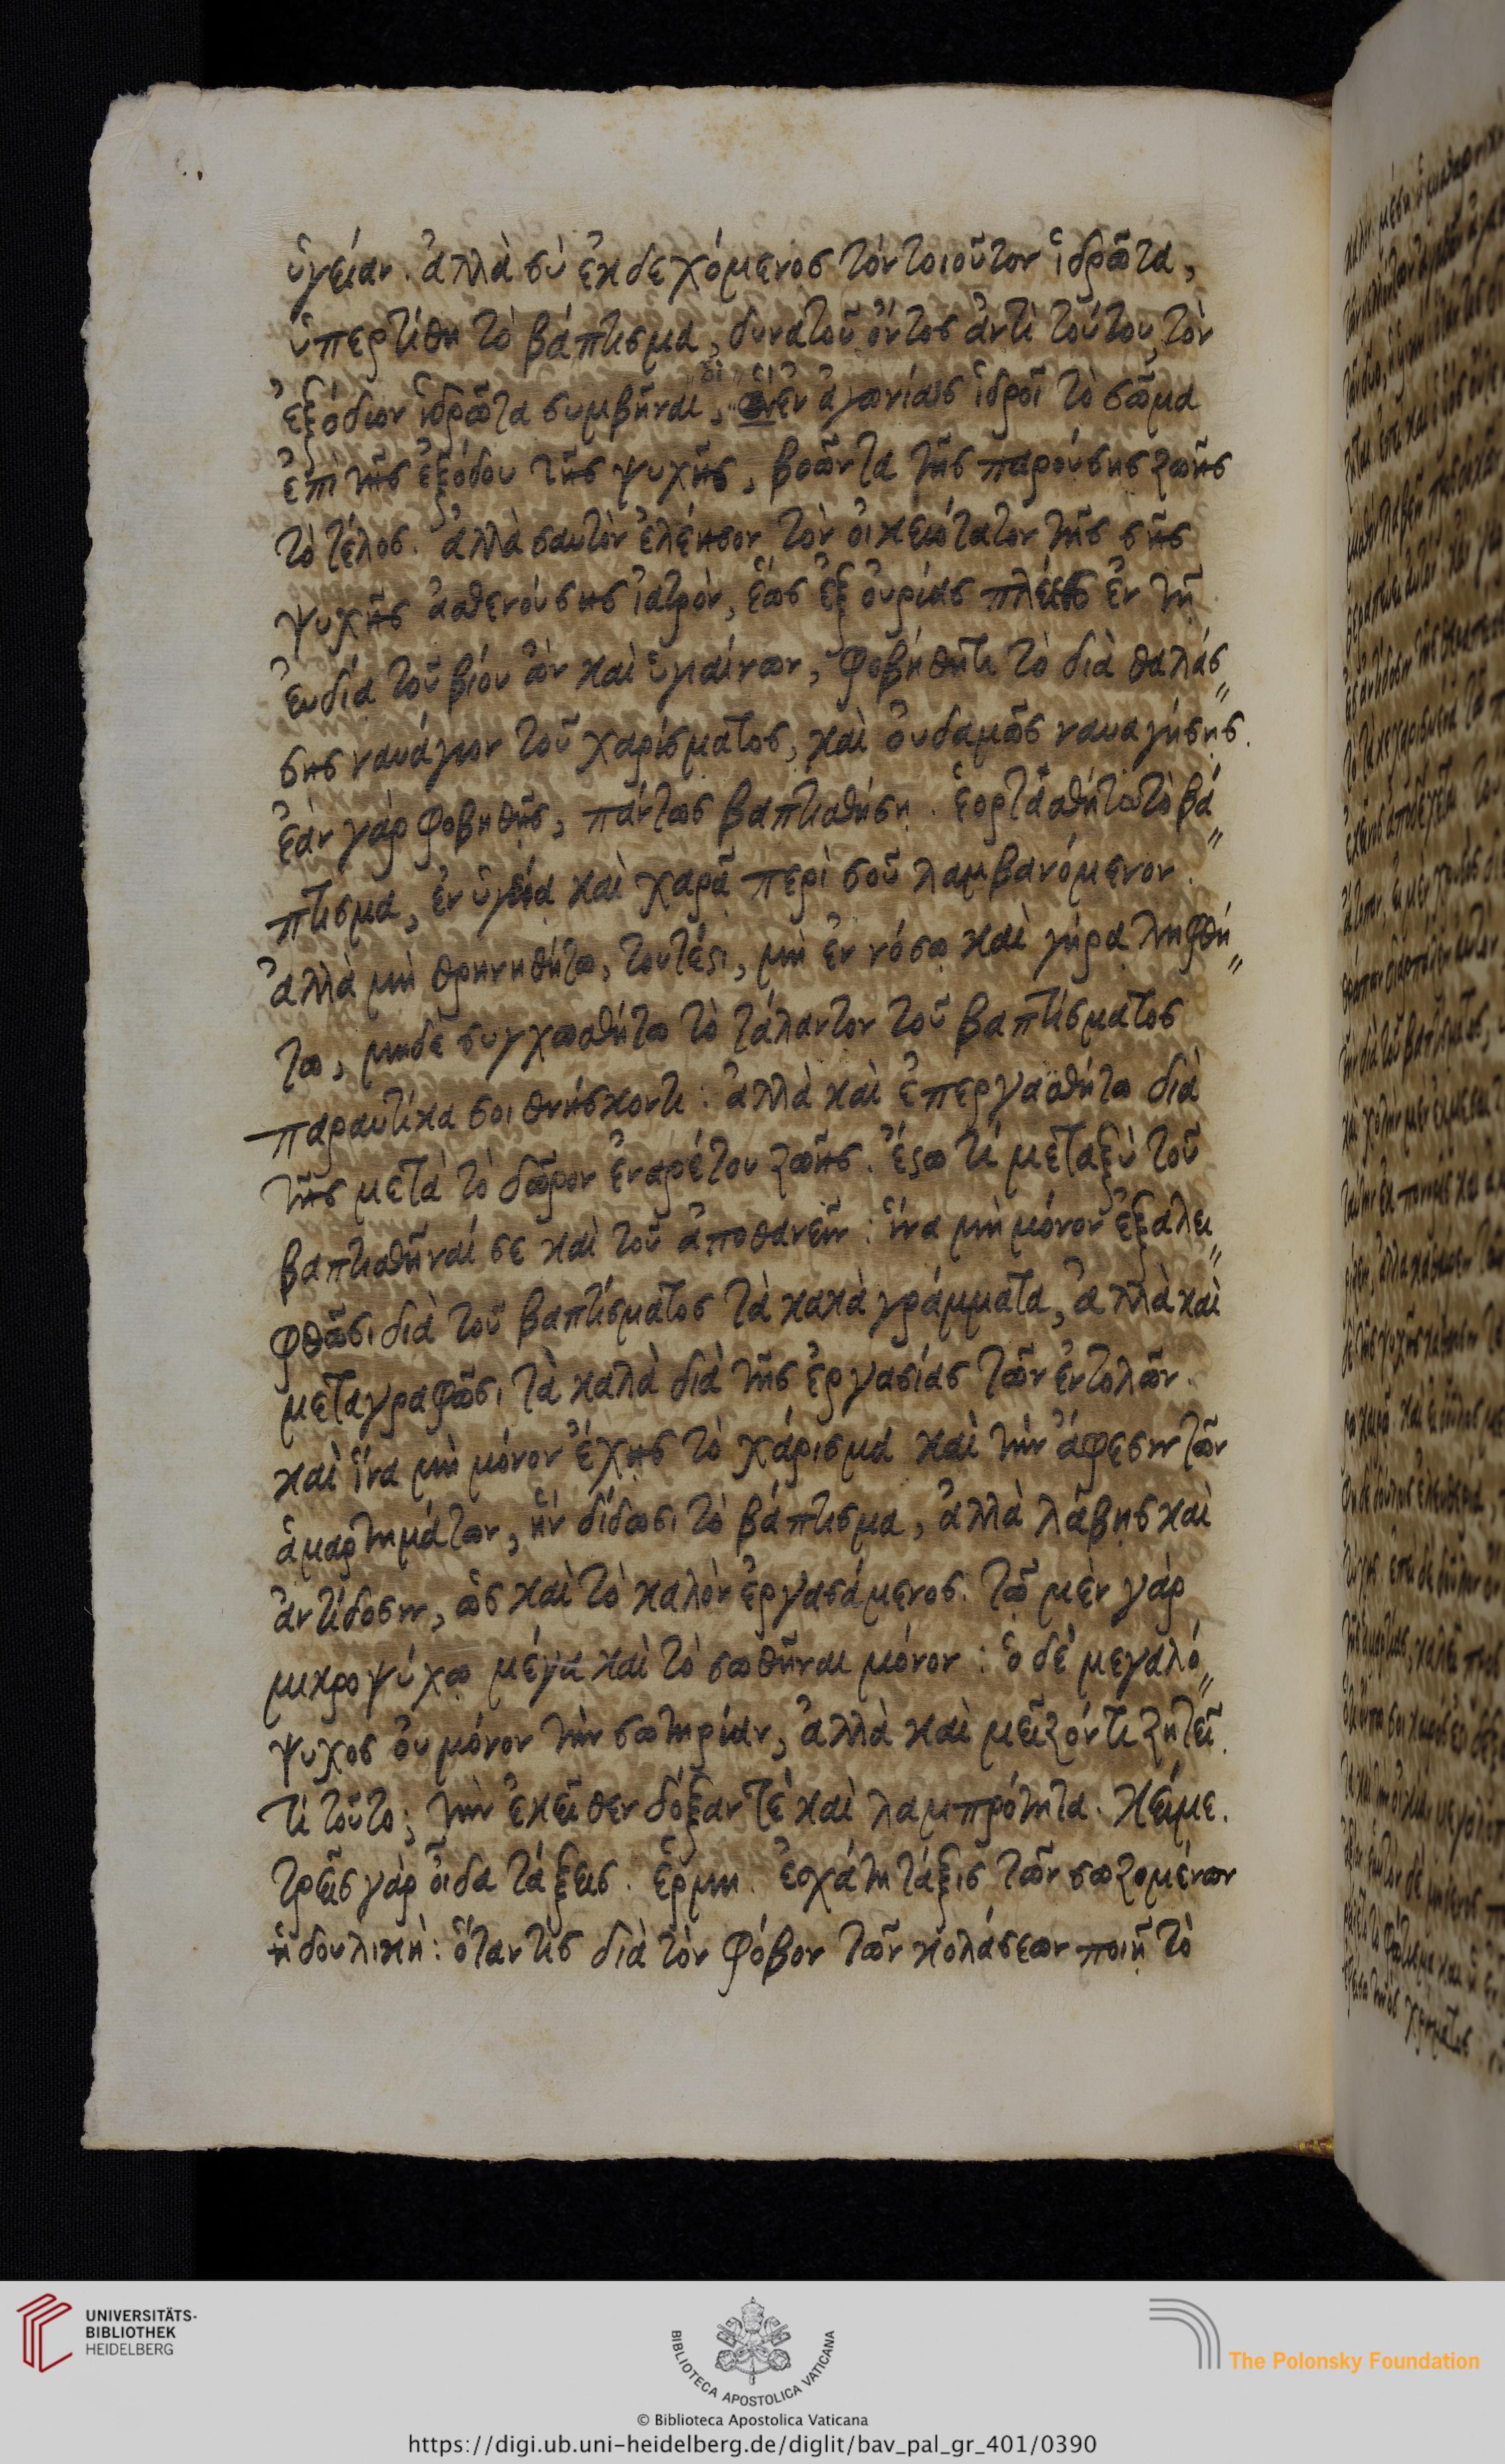 ὑγείαν. ἀλλὰ σὺ ἐκδεχόμενος τὸν τοιοῦτον ἱδρῶτα,
ὑπερτίθη τὸ βάπτισμα, δυνατοῦ ὄντος ἀντὶ τούτου, τὸν
ἐξόδιον ἱδρῶτα συμβῆναι, ἐν ἀγωνίαις ἱδροῖ τὸ σῶμα
ἐπὶ τῆς ἐξόδου τῆς ψυχῆς, βοῶντα τῆς παρούσης ζωῆς
τὸ τέλος. ἀλλὰ σαυτὸν ἐλέησον τὸν οἰκειότατον τῆς σῆς
ψυχῆς ἀσθενούσης ἰατρὸν, ἕως ἐξ οὐρίας πλέεις ἐν τῇ
ἐυδία τοῦ βίου ὢν καὶ ὑγιαίνων, φοβήθητι τὸ διὰ θαλάσ
σης ναυάγιον τοῦ χαρίσματος, καὶ οὐδαμῶς ναυαγήσῃς.
ἐὰν γὰρ φοβηθῇς, πάντως βαπτισθήσῃ. ἑορτασθήτω τὸ βά
πτισμα, ἐν ὑγείᾳ καὶ χαρᾷ περὶ σοῦ λαμβανόμενον.
ἀλλὰ μὴ θρηνηθήτω, τουτέστι, μὴ ἐν νόσῳ καὶ γήρᾳ ληφθή
τω, μηδὲ συγχωσθήτω τὸ τάλαντον τοῦ βαπτίσματος
παραυτίκα σοι θνήσκοντι: ἀλλὰ καὶ ἐπεργασθήτω διὰ
τῆς μετὰ τὸ δῶρον ἐναρέτου ζωῆς. ἔστω τί μεταξὺ τοῦ
βαπτισθῆναί σε καὶ τοῦ ἀποθανεῖν: ἵνα μὴ μόνον ἐξαλει
φθῶσι διὰ τοῦ βαπτίσματος τὰ κακὰ γράμματα, ἀλλὰ καὶ
μεταγραφῶσι τὰ καλὰ διὰ τῆς ἐργασίας τῶν ἐντολῶν.
καὶ ἵνα μὴ μόνον ἔχῃς τὸ χάρισμα καὶ τὴν ἄφεσιν τῶν
ἁμαρτημάτων, ἣν δίδωσι τὸ βάπτισμα, ἀλλὰ λάβῃς καὶ
ἀντίδοσιν, ὡς καὶ τὸ καλὸν ἐργασάμενος. τῷ μὲν γὰρ
μικροψύχῳ μέγα καὶ τὸ σωθῆναι μόνον: ὁ δὲ μεγαλό
ψυχος οὐ μόνον τὴν σωτηρίαν, ἀλλὰ καὶ μεῖζόν τι ζητεῖ.
τί τοῦτο; τὴν ἐκεῖθεν δόξαν τὲ καὶ λαμπρότητα. κείμε.
τρεῖς γὰρ οἶδα τάξεις. ἑρμη. ἐσχάτη τάξις τῶν σωζομένων
ἡ δουλικὴ: ὅταν τίς διὰ τὸν φόβον τῶν κολάσεων ποιῇ τὸ
UNIVERSITÄTS-
BIBLIOTHEK
HEIDELBERG
BIBLIOTECA APOSTOLICA VATICANA
The Polonsky Foundation
© Biblioteca Apostolica Vaticana
https://digi.ub.uni-heidelberg.de/diglit/bav_pal_gr_401/0390